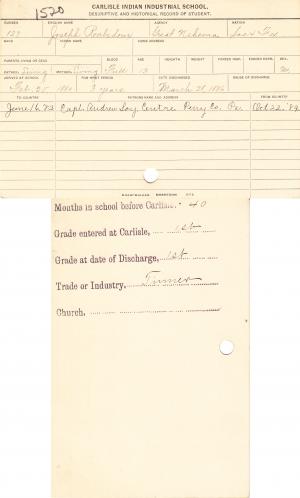 1520
CARLISLE INDIAN INDUSTRIAL SCHOOL.
DESCRIPTIVE AND HISTORICAL RECORD OF STUDENT.
NUMBER ENGLISH NAME AGENCY NATION
Joseph Great Nemaha Sac & Fox
BAND INDIAN NAME HOME ADDRESS
PARENTS LIVING OR DEAD BLOOD AGE HEIGHT WEIGHT FORCED INSP. FORCED EXPR. SEX
FATHER Living MOTHER Living Full 13 M.
ARRIVED AT SCHOOL FOR WHAT PERIOD DATE DISCHARGED CAUSE OF DISCHARGE
Feb. 25 1880 3 years March 28, 1886
TO COUNTRY PATRONS NAME AND ADDRESS FROM COUNTRY
Capt. Andrew Loy Centre Perry Co. Pa. Oct 22,
Months in school before Carlisle, 40
Grade entered at Carlisle, 1st
Grade at date of Discharge, 1st
Trade or Industry, Tinner
Church,